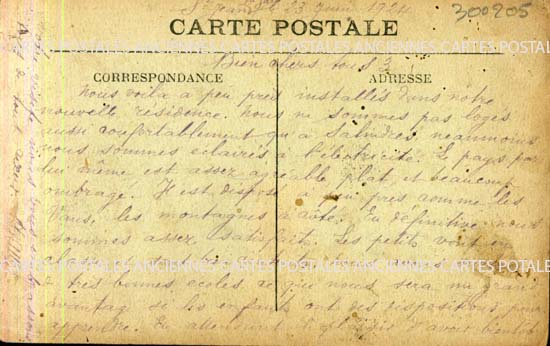 300905
23 juin 1924
CARTE POSTALE
Bien chers tous 3
CORRESPONDANCE
ADRESSE
Nous voilà a peu près installés dans notre
nouvelle résidence. Nous ne sommes pas logés
aussi confortablement qu'a Salindres néanmoins
nous sommes eclairés à l'électricité. Le pays par
lui même est assez agréable plat et beaucoup
ombragé. Il est disposé a peu près comme les
Vans, les montagnes a côté. En définitive nous
sommes assez satisfaits. Les petits vont en
CARTES POSTALES ANCIENNES CARTES POSTALES ANCIENNES CARTES POTALES
classe et sont très
a très bonnes ecoles ce qui nous sera un grand
avantage si les enfants ont des dispositions pour
apprendre. En attendant d'avoir bientôt